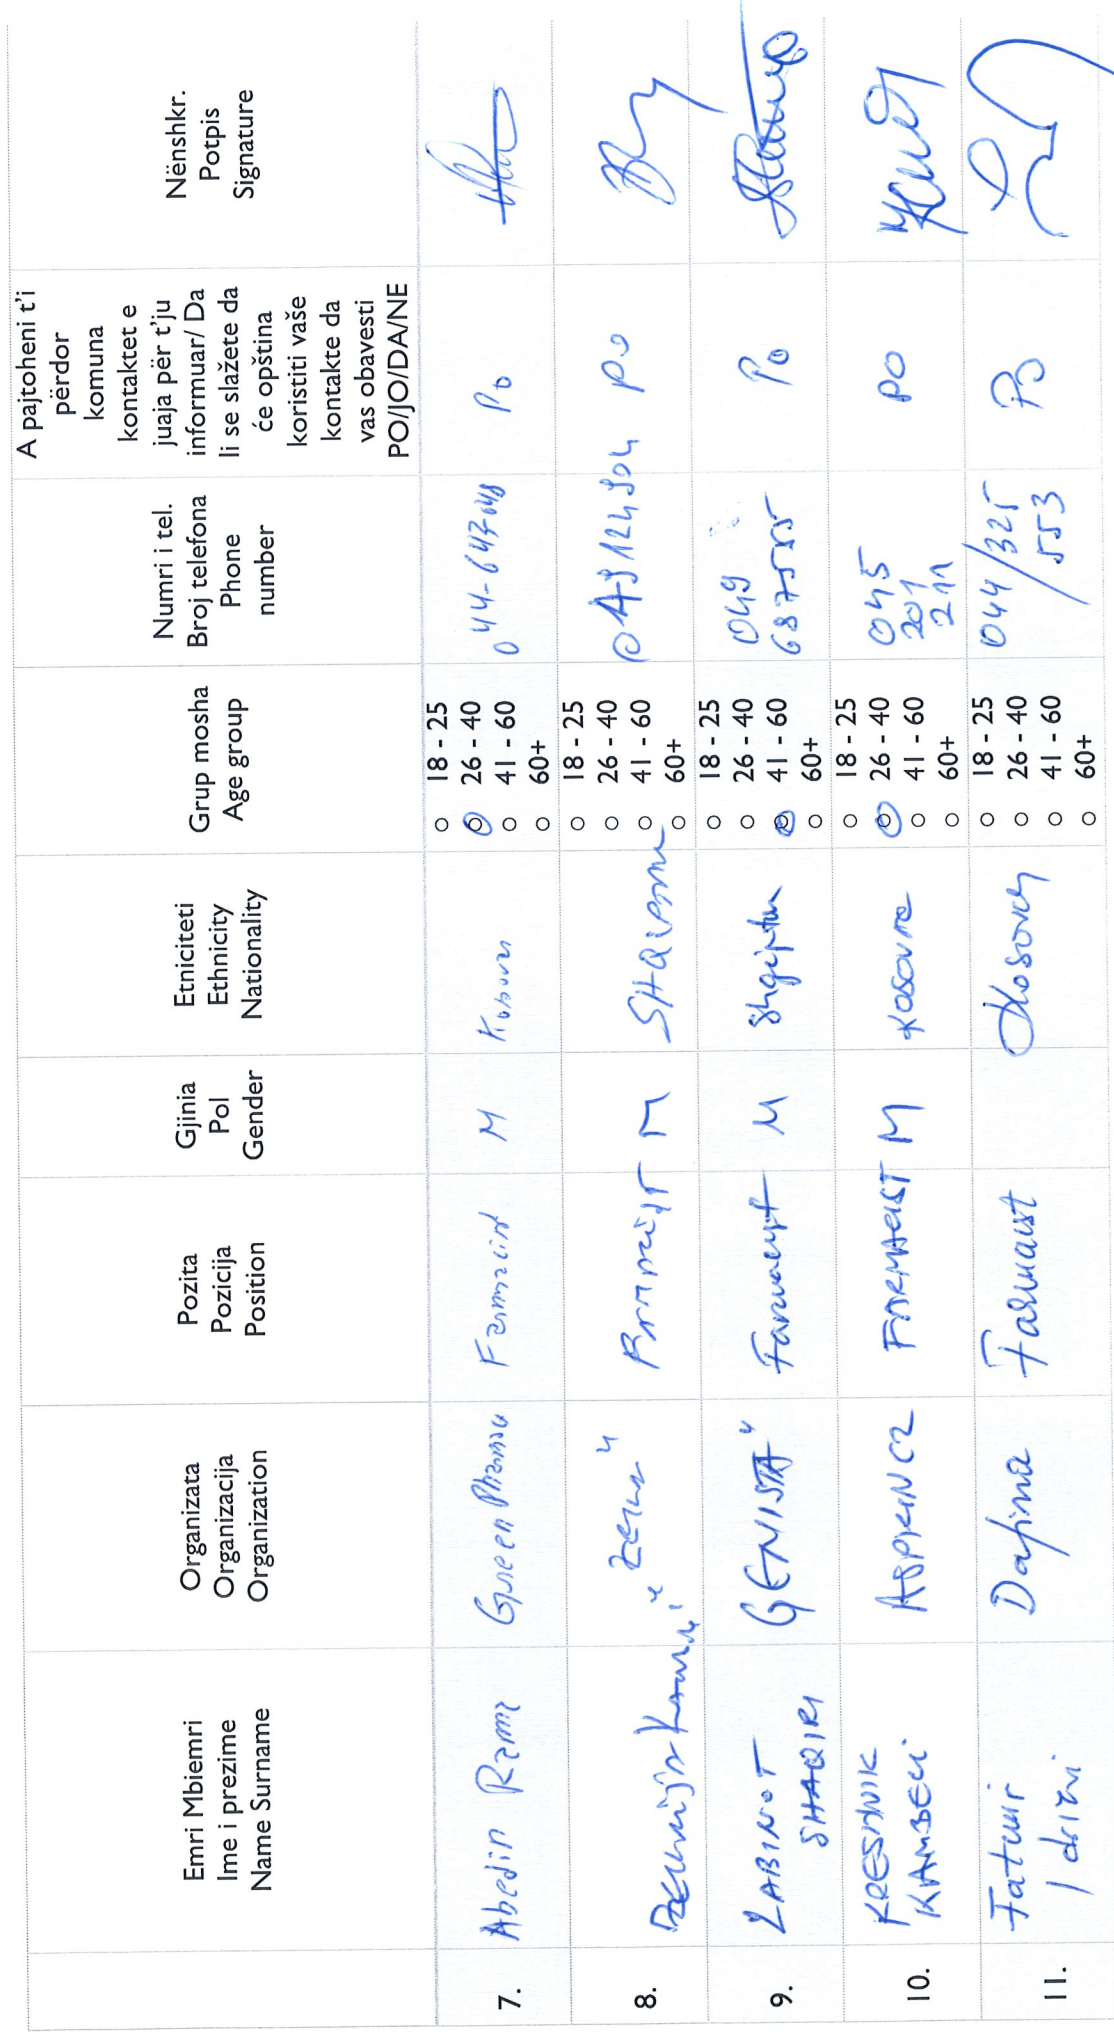 Emri Mbiemri
Ime i prezime
Name Surname
Organizata
Organizacija
Organization
Pozita
Pozicija
Position
Gjinia
Pol
Gender
Etniciteti
Ethnicity
Nationality
Grup mosha
Age group
Numri i tel.
Broj telefona
Phone
number
A pajtoheni t'i
përdor
komuna
kontaktet e
juaja për t'ju
informuar/ Da
li se slažete da
će opština
koristiti vaše
kontakte da
vas obavesti
PO/JO/DA/NE
Nënshkr.
Potpis
Signature
7.
Abedin Rama
Green Pharma
M
18 - 25
26 - 40
41 - 60
60+
Po
8.
M
18 - 25
26 - 40
41 - 60
60+
PO
9.
LABINOT
SHAQIRI
GENISTA"
Farmacist
M
Shqiptar
18 - 25
26 - 40
41 - 60
60+
049
687555
Po
10.
KRESHNIK
FARMACIST
M
Kosovar
18 - 25
26 - 40
41 - 60
60+
045
201
211
PO
11.
Fatmir
Idrizi
Dafina
Farmacist
Kosovar
18 - 25
26 - 40
41 - 60
60+
044/325
/553
PO